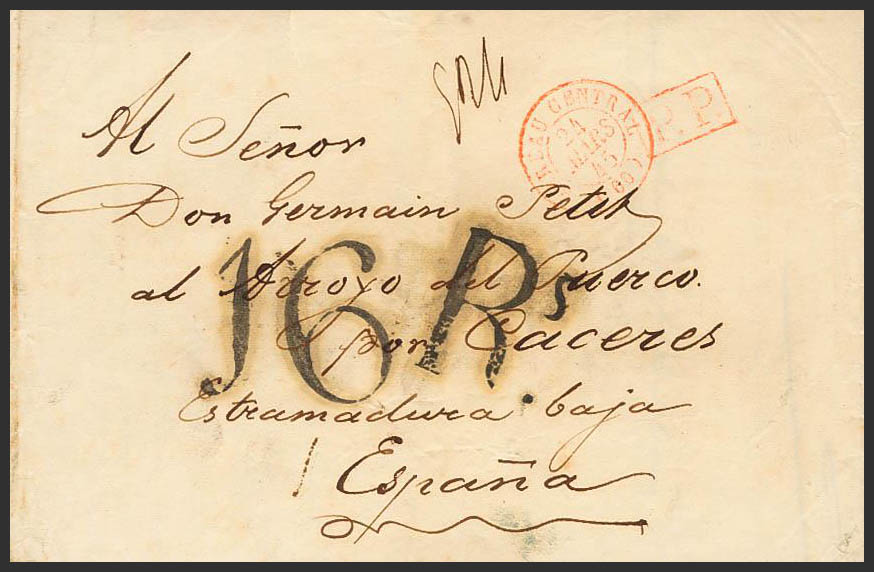 Al Señor
Don Germain Petit
al Arroyo del Puerco.
por Caceres
Estramadura baja
España
16 Rs.
BUREAU CENTRAL
24
MARS
45
(60)
P.P.